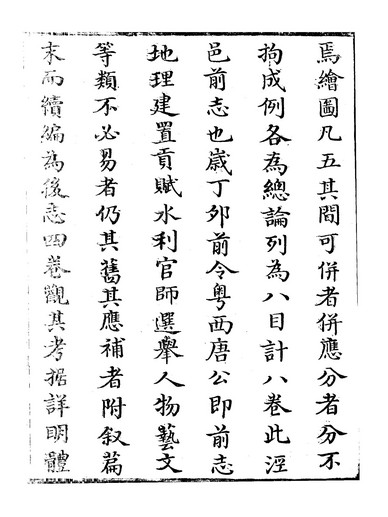 焉繪圖凡五其間可併者併應分者分不
拘成例各為總論列為八目計八卷此涇
邑前志也嵗丁夘前令粤西唐公即前志
地理建置貢賦水利官師選舉人物藝文
等類不必易者仍其舊其應補者附叙篇
末而續編為後志四卷觀其考据詳明體